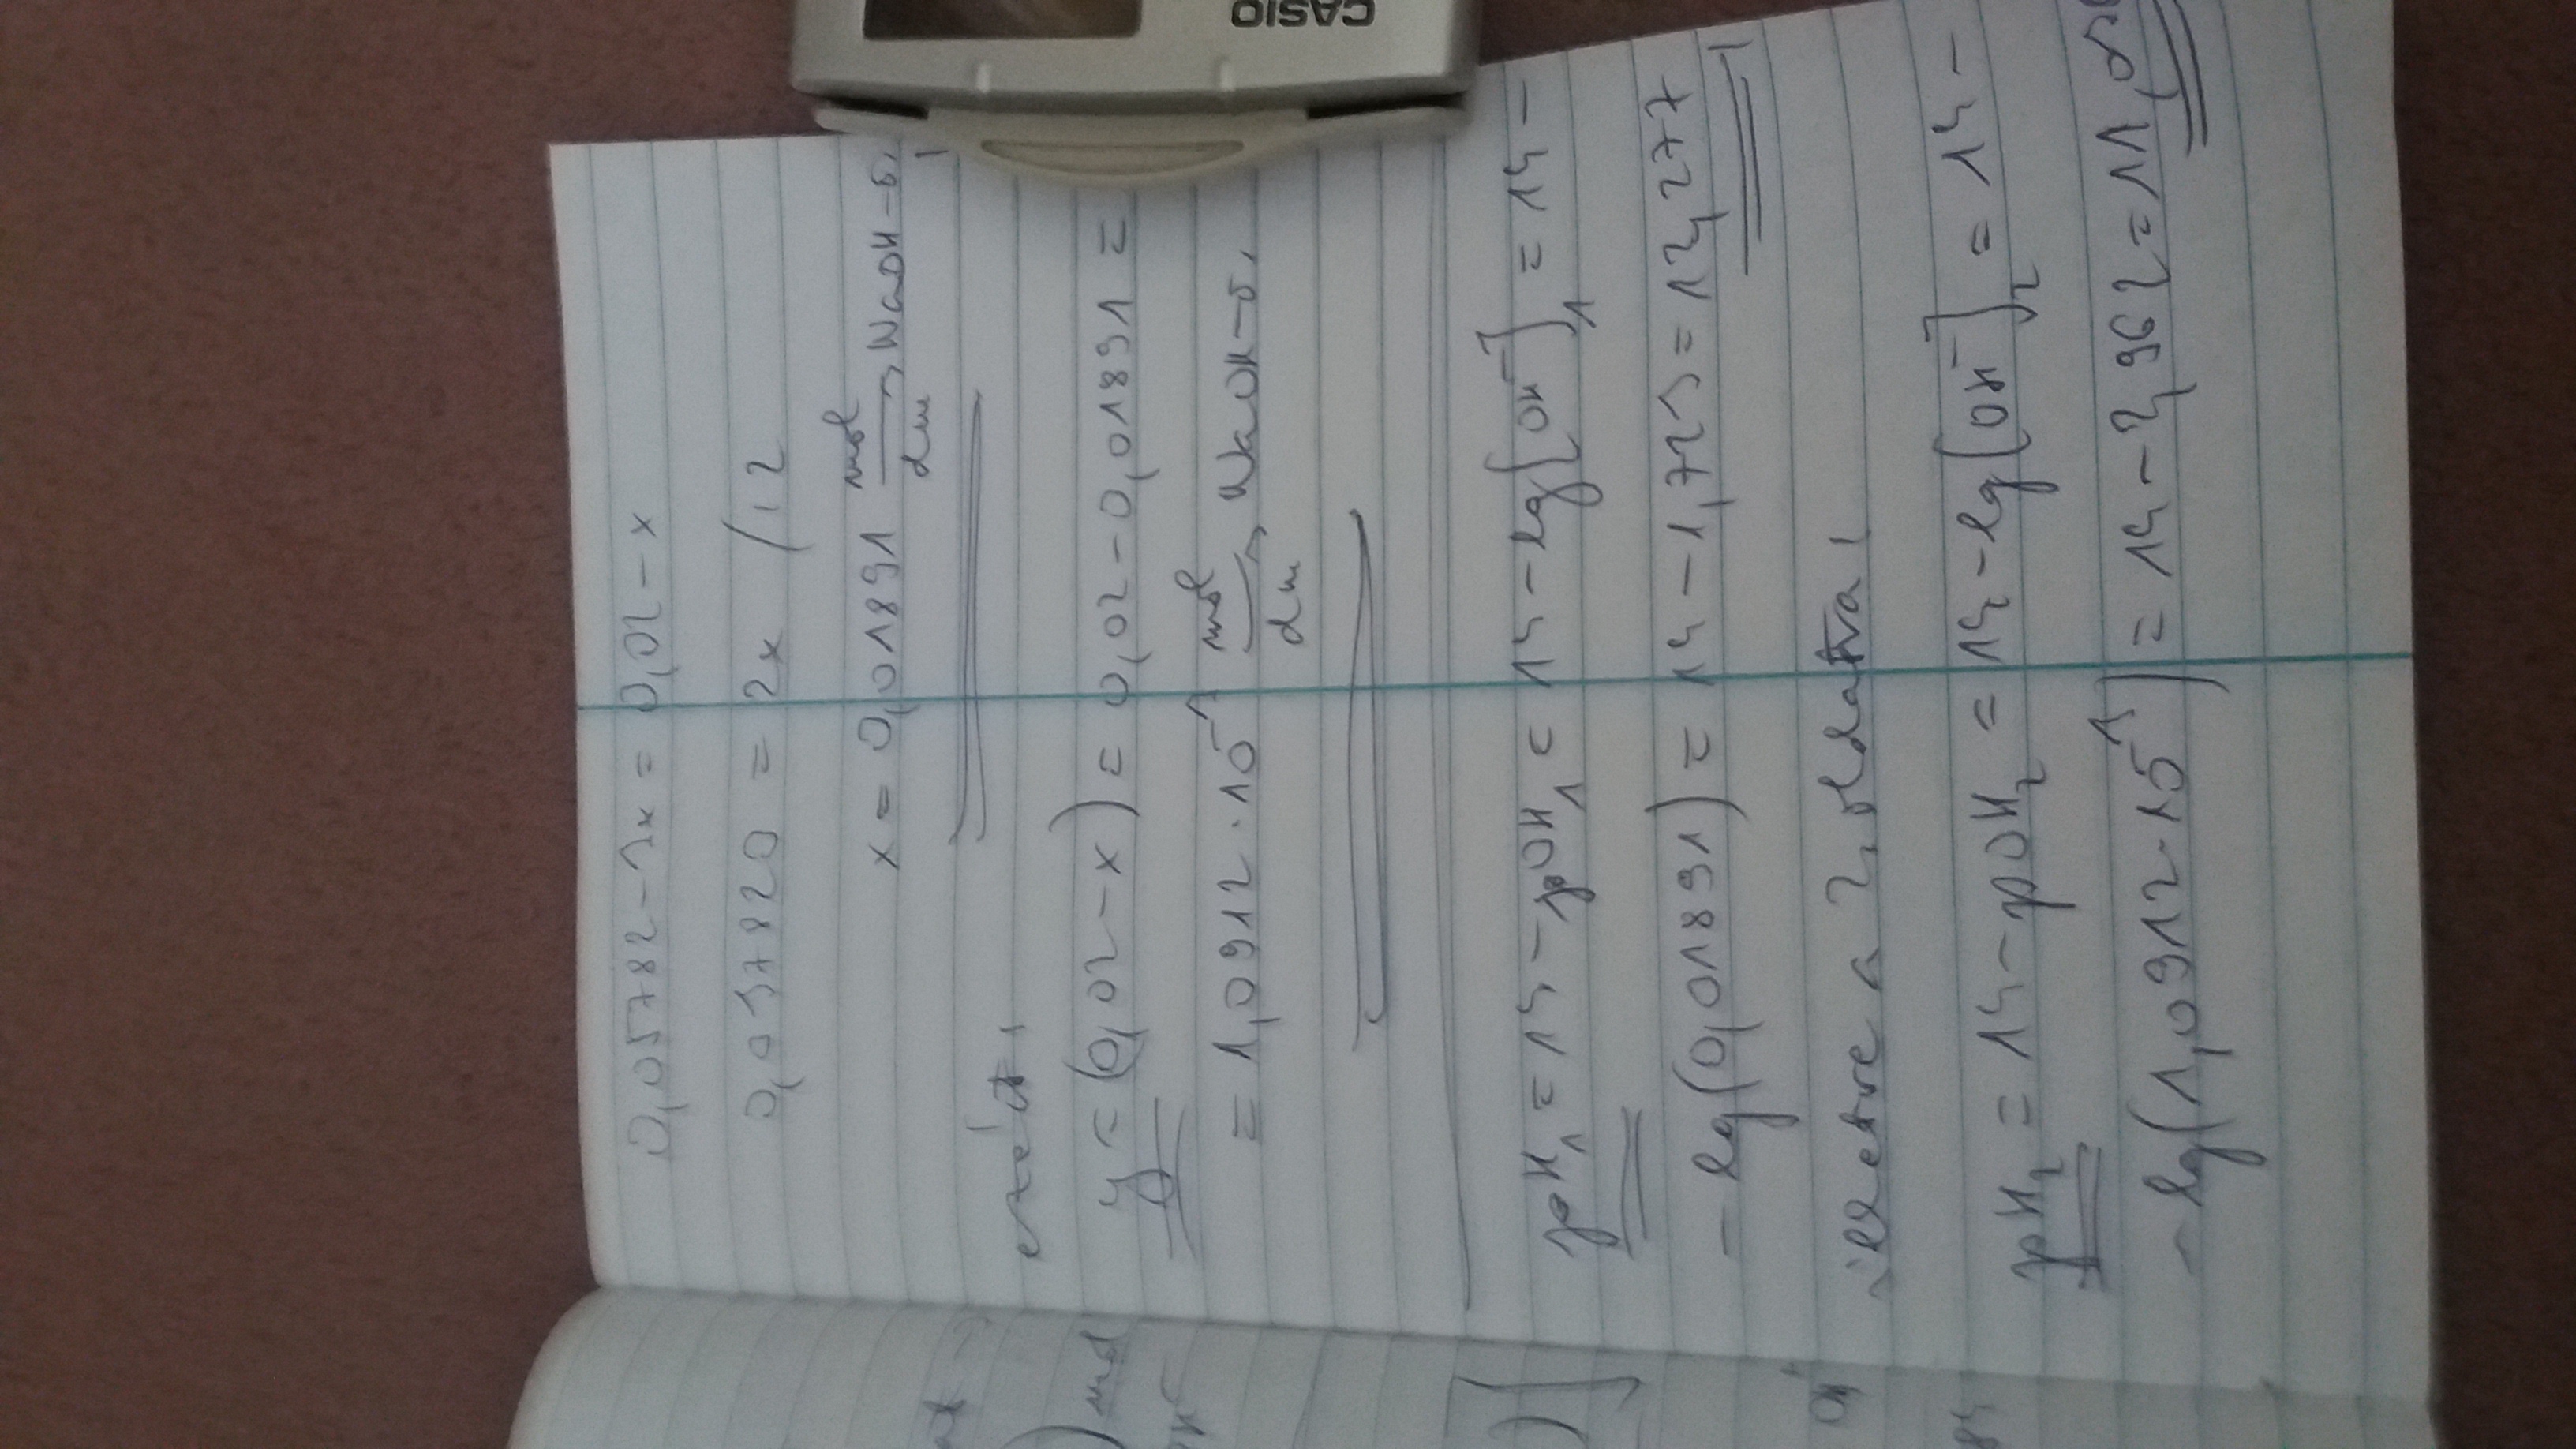 CASIO
0,05782-3x = 0,02-x
0,03782 0 = 2x /:2
x = 0,01891 mol/dm³ NaOH-ó.
ezért,
y = (0,02-x) = 0,02-0,01891 =
= 1,0912·10⁻³ mol/dm³ NaOH-ó.
pH₁ = 14-pOH₁ = 14-lg[OH⁻]₁ = 14-
-lg(0,01891) = 14-1,723 = 12,277
illetve a 2. oldatra!
pH₂ = 14-pOH₂ = 14-lg[OH⁻]₂ = 14-
-lg(1,0912·10⁻³) = 14-2,962 = 11,0
mol